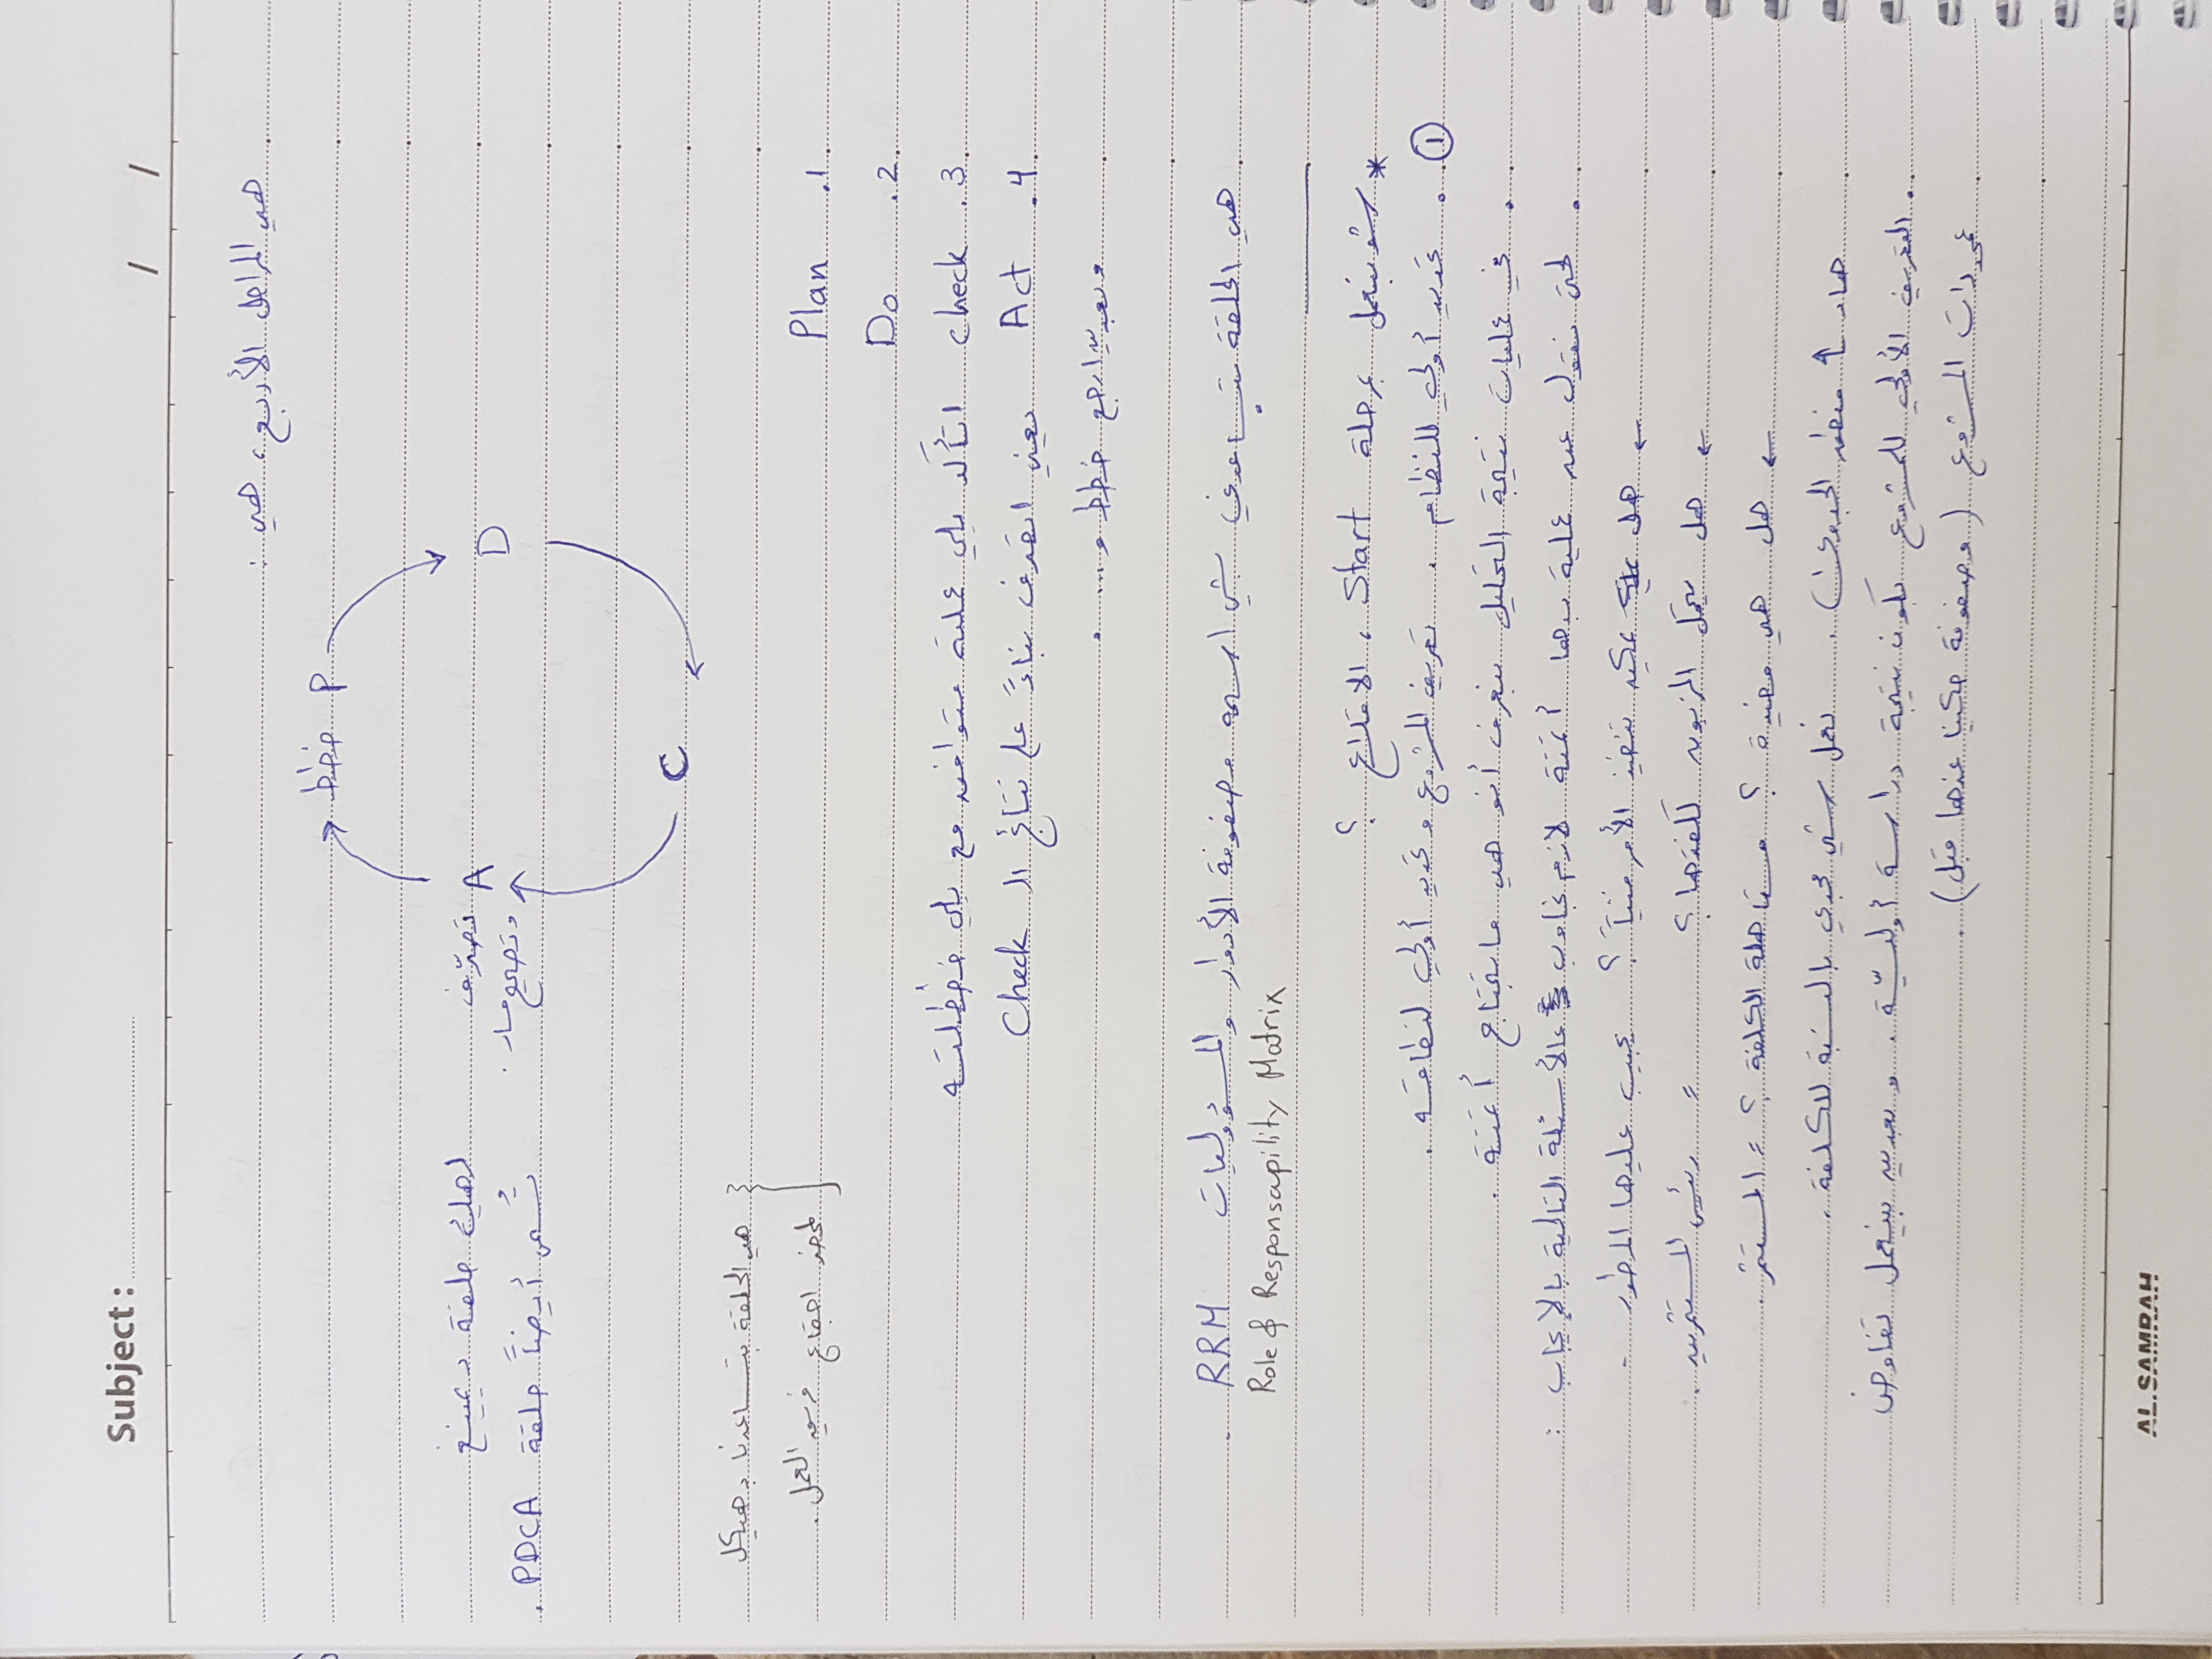 Subject :
/ /
هي المراحل الأربع، هي :
خطط P
D
A تصرّف
وتصحيح مسار .
C
لهيك حلقة ديمينغ
تُسمى أيضاً حلقة PDCA .
هي الحلقة بتساعدنا بهيكل
لمحضر اجتماع فريق العمل .
1. Plan
2. Do
3. check اتأكد يلي عملته متوافق مع يلي خططلته
4. Act يعني اتصرف بناءً على نتائج الـ Check
وبعدين ارجع خطط و... .
هي الحلقة بتساعدني بشي اسمه مصفوفة الأدوار والمسؤوليات RRM .
Role & Responsapility Matrix
* شو بنعمل بمرحلة Start ، الاقلاع ؟
① . تحديد أولي للنظام . تعريف المشروع وتحديد أولي لنطاقه .
. في عمليات نتيجة التحليل بنعرف أنو هي ما بتحتاج أتمتة .
. لحتى نقول عن عملية بدها أتمتة لازم نجاوب عالأسئلة التالية بالإيجاب :
← هل يمكن تنفيذ الأمر فنياً ؟ يجيب عليها المطور .
← هل يتحمل الزبون تكلفتها ؟ = رئيس المستثمرين .
← هل هي مفيدة ؟ مستاهلة الكلفة ؟ = المستثمر .
هاد ↑ منطق الجدوى) . نعمل شي مجدي بالنسبة للكلفة .
. التعريف الأولي للمشروع بكون نتيجة دراسة أوليّة . وبعدين بينعمل تفاوض
محددات المشروع (مصفوفة حكينا عنها قبل) .
AL.SAMRAH